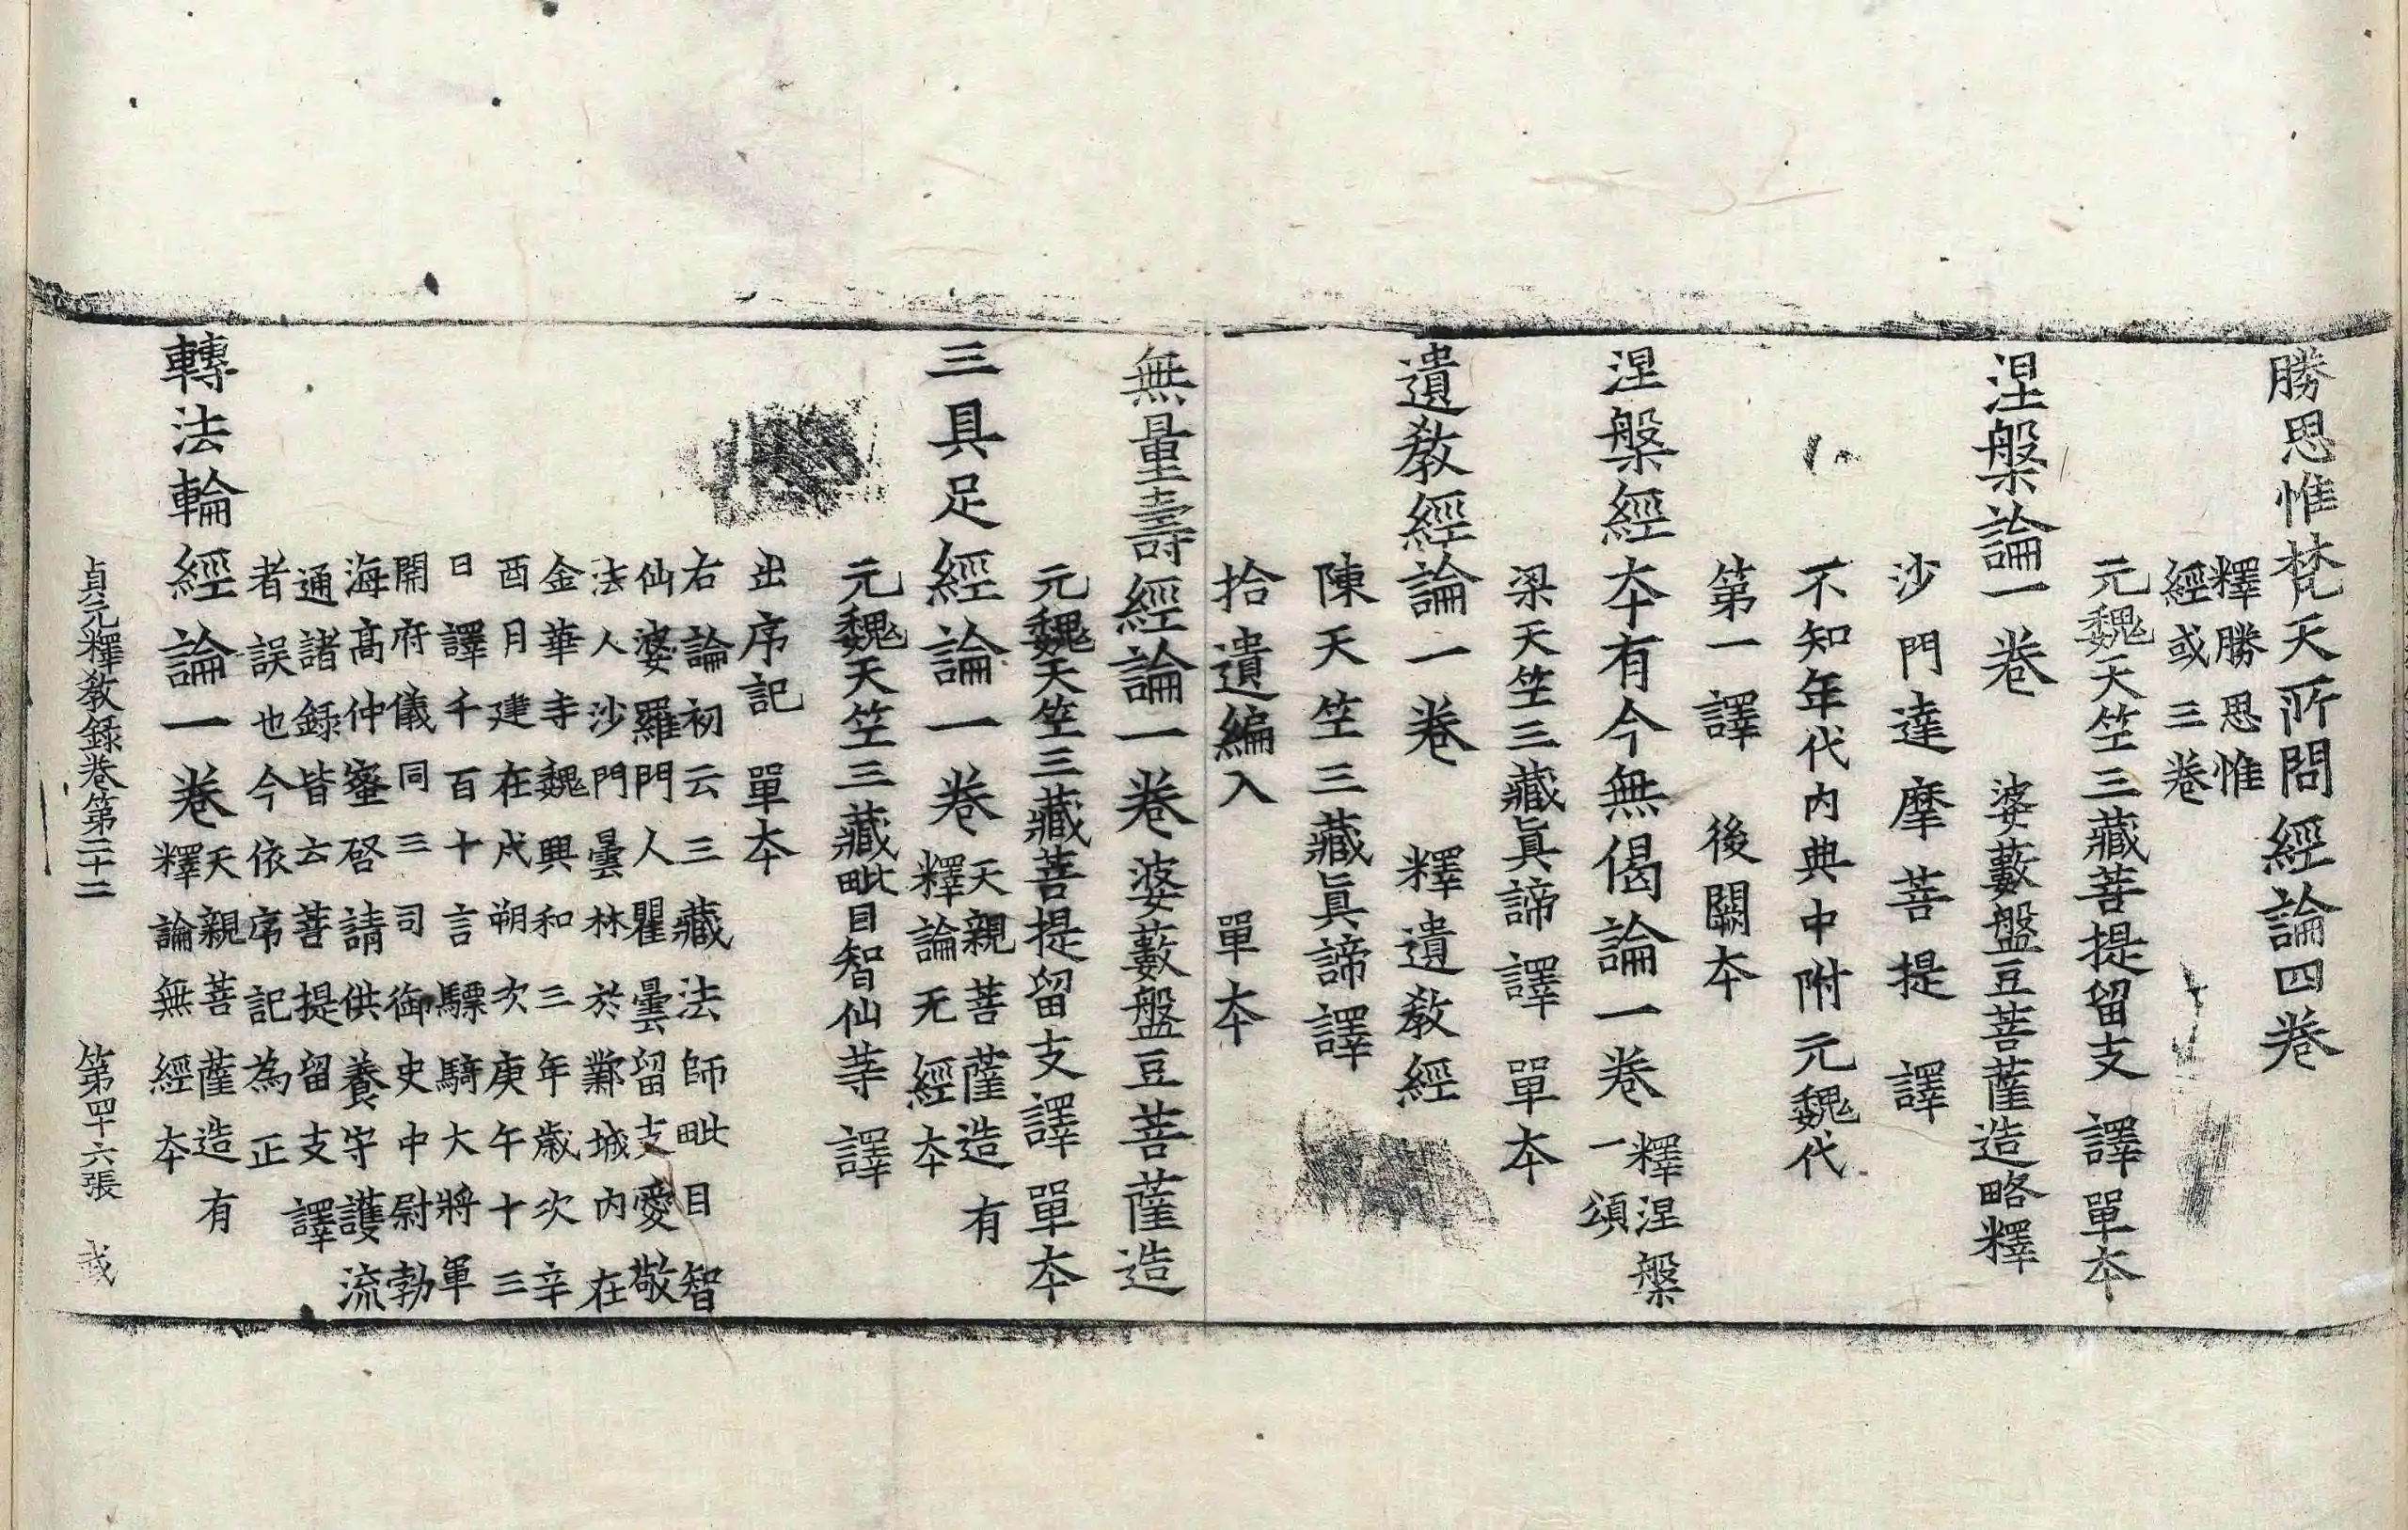 勝思惟梵天所問經論四卷
釋勝思惟
經或三卷
元魏天竺三藏菩提留支譯單夲
涅槃論一卷 婆藪盤豆菩薩造略釋
沙門達摩菩提譯
不知年代內典中附元魏代
第一譯 後闕夲
涅槃經夲有今無偈論一卷 釋涅槃
一頌
梁天竺三藏眞諦譯單夲
遺敎經論一卷 釋遺敎經
陳天竺三藏眞諦譯
拾遺編入 單夲
無量壽經論一卷婆藪盤豆菩薩造
元魏天竺三藏菩提留支譯單夲
三具足經論一卷 天親菩薩造有
釋論无經夲
元魏天竺三藏毗目智仙䓁譯
出序記 單夲
右論初云三藏法師毗目智
仙婆羅門人瞿曇留支愛敬
法人沙門曇林於鄴城內在
金華寺魏興和三年歲次辛
酉月建在戌朔次庚午十三
日譯千百十言驃騎大將軍
開府儀同三司御史中尉勃
海髙仲密啓請供養守護流
通諸録皆云菩提留支譯
者誤也今依序記為正
轉法輪經論一卷 天親菩薩造有
釋論無經夲
貞元釋敎錄卷第二十二 第四十六張